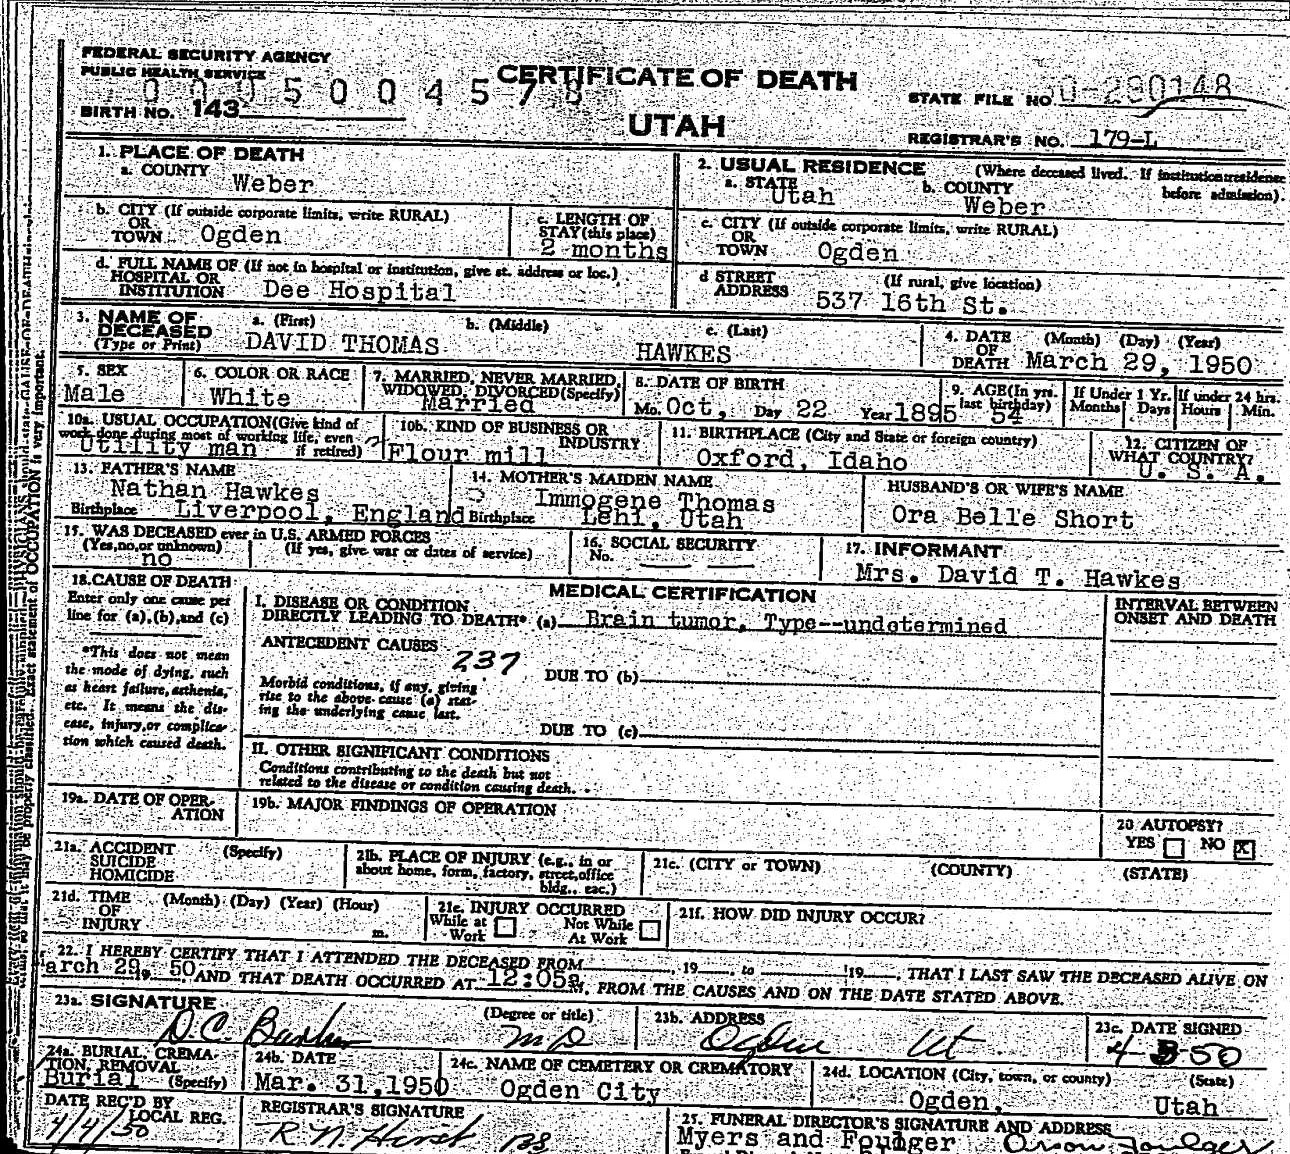 FEDERAL SECURITY AGENCY
PUBLIC HEALTH SERVICE
CERTIFICATE OF DEATH
UTAH
BIRTH NO. 143
STATE FILE NO.
REGISTRAR'S NO. 179-L
1. PLACE OF DEATH
a. COUNTY
Weber
2. USUAL RESIDENCE (Where deceased lived. If institution: residence before admission).
a. STATE Utah b. COUNTY Weber
b. CITY (If outside corporate limits, write RURAL)
OR
TOWN Ogden
c. LENGTH OF
STAY (this place)
2 months
c. CITY (If outside corporate limits, write RURAL)
OR
TOWN Ogden
d. FULL NAME OF (If not in hospital or institution, give st. address or loc.)
HOSPITAL OR
INSTITUTION Dee Hospital
d STREET (If rural, give location)
ADDRESS 537 16th St.
3. NAME OF
DECEASED
(Type or Print)
a. (First) b. (Middle) c. (Last)
DAVID THOMAS HAWKES
4. DATE (Month) (Day) (Year)
OF
DEATH March 29, 1950
5. SEX
Male
6. COLOR OR RACE
White
7. MARRIED, NEVER MARRIED,
WIDOWED, DIVORCED (Specify)
Married
8. DATE OF BIRTH
Mo. Oct, Day 22 Year 1895
9. AGE (In yrs.
last birthday)
54
If Under 1 Yr.
Months Days
If under 24 hrs.
Hours Min.
10a. USUAL OCCUPATION (Give kind of
work done during most of working life, even
if retired)
Utility man
10b. KIND OF BUSINESS OR
INDUSTRY
Flour mill
11. BIRTHPLACE (City and State or foreign country)
Oxford, Idaho
12. CITIZEN OF
WHAT COUNTRY?
U. S. A.
13. FATHER'S NAME
Nathan Hawkes
Birthplace Liverpool, England
14. MOTHER'S MAIDEN NAME
Immogene Thomas
Birthplace Lehi, Utah
HUSBAND'S OR WIFE'S NAME
Ora Belle Short
15. WAS DECEASED ever in U.S. ARMED FORCES
(Yes, no, or unknown) (If yes, give war or dates of service)
no
16. SOCIAL SECURITY
No.
17. INFORMANT
Mrs. David T. Hawkes
18. CAUSE OF DEATH
Enter only one cause per
line for (a), (b), and (c)
*This does not mean
the mode of dying, such
as heart failure, asthenia,
etc. It means the dis-
ease, injury, or complica-
tion which caused death.
MEDICAL CERTIFICATION
INTERVAL BETWEEN
ONSET AND DEATH
I. DISEASE OR CONDITION
DIRECTLY LEADING TO DEATH* (a) Brain tumor, Type--undetermined
ANTECEDENT CAUSES
237
Morbid conditions, if any, giving
rise to the above cause (a) stat-
ing the underlying cause last.
DUE TO (b)
DUE TO (c)
II. OTHER SIGNIFICANT CONDITIONS
Conditions contributing to the death but not
related to the disease or condition causing death.
19a. DATE OF OPER-
ATION
19b. MAJOR FINDINGS OF OPERATION
20 AUTOPSY?
YES NO X
21a. ACCIDENT (Specify)
SUICIDE
HOMICIDE
21b. PLACE OF INJURY (e.g., in or
about home, form, factory, street, office
bldg., eac.)
21c. (CITY or TOWN) (COUNTY) (STATE)
21d. TIME (Month) (Day) (Year) (Hour)
OF
INJURY m.
21e. INJURY OCCURRED
While at Work Not While At Work
21f. HOW DID INJURY OCCUR?
22. I HEREBY CERTIFY THAT I ATTENDED THE DECEASED FROM , 19 , to , 19 , THAT I LAST SAW THE DECEASED ALIVE ON
arch 29 19 50 AND THAT DEATH OCCURRED AT 12:05a M. FROM THE CAUSES AND ON THE DATE STATED ABOVE.
23a. SIGNATURE (Degree or title)
MD
23b. ADDRESS
Ogden Ut
23c. DATE SIGNED
24a. BURIAL, CREMA-
TION, REMOVAL
(Specify)
Burial
24b. DATE
Mar. 31, 1950
24c. NAME OF CEMETERY OR CREMATORY
Ogden City
24d. LOCATION (City, town, or county) (State)
Ogden, Utah
DATE REC'D BY
LOCAL REG.
4/4/50
REGISTRAR'S SIGNATURE
25. FUNERAL DIRECTOR'S SIGNATURE AND ADDRESS
Myers and Foulger